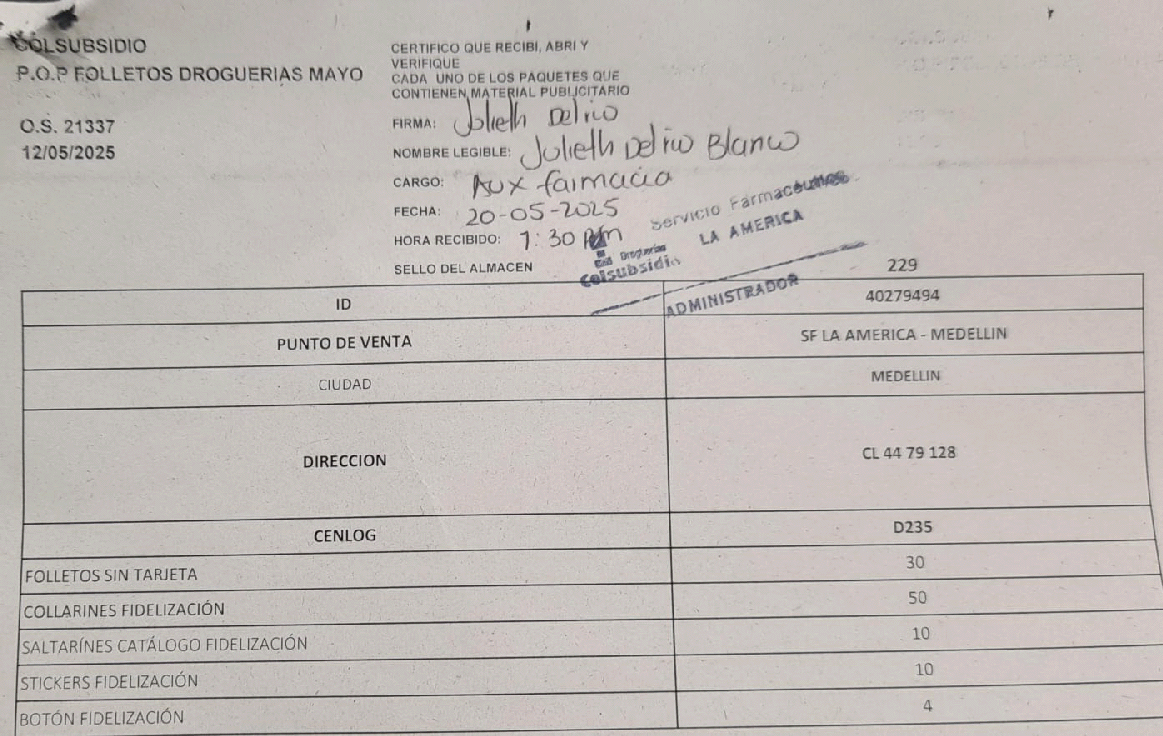 COLSUBSIDIO
P.O.P FOLLETOS DROGUERIAS MAYO
O.S. 21337
12/05/2025
CERTIFICO QUE RECIBI, ABRI Y
VERIFIQUE
CADA UNO DE LOS PAQUETES QUE
CONTIENEN MATERIAL PUBLICITARIO
FIRMA: Julieth Del rio
NOMBRE LEGIBLE: Julieth Del rio Blanco
CARGO: Aux farmacia
FECHA: 20-05-2025
HORA RECIBIDO: 1:30 PM
SELLO DEL ALMACEN
Servicio Farmacéutico
LA AMERICA
Droguerías
Colsubsidio
ADMINISTRADOR
229
ID 40279494
PUNTO DE VENTA SF LA AMERICA - MEDELLIN
CIUDAD MEDELLIN
DIRECCION CL 44 79 128
CENLOG D235
FOLLETOS SIN TARJETA 30
COLLARINES FIDELIZACIÓN 50
SALTARÍNES CATÁLOGO FIDELIZACIÓN 10
STICKERS FIDELIZACIÓN 10
BOTÓN FIDELIZACIÓN 4